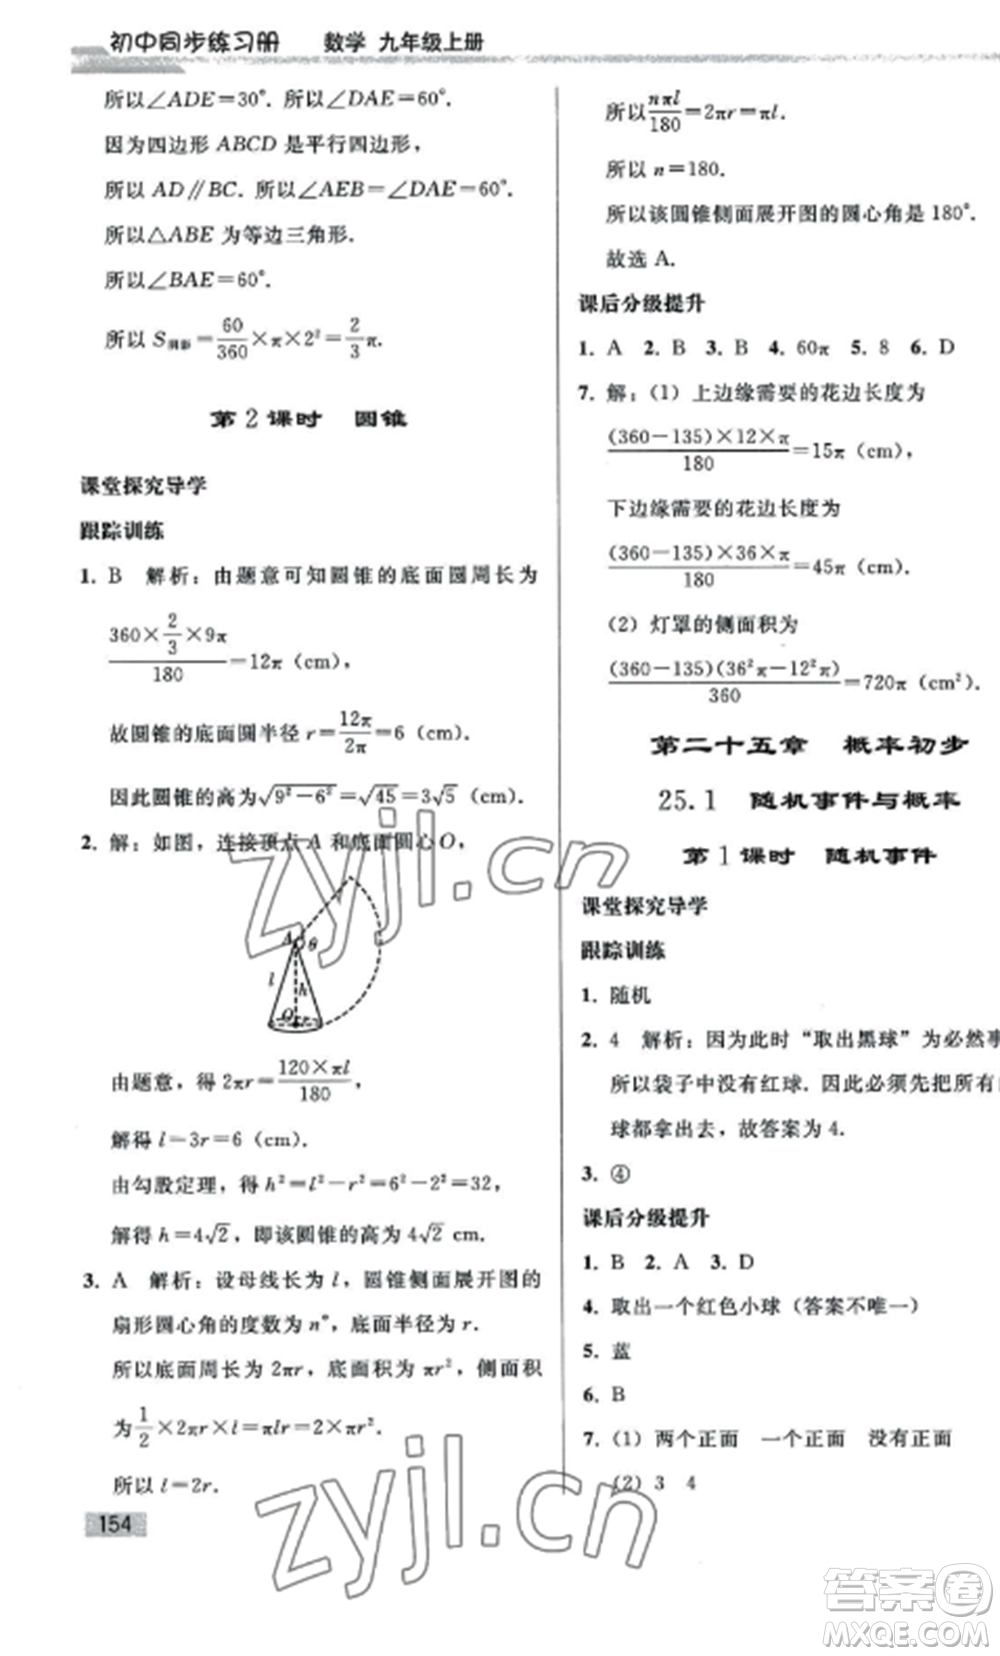 初中同步练习册 数学 九年级上册
所以∠ADE=30°. 所以∠DAE=60°.
因为四边形 ABCD 是平行四边形，
所以 AD∥BC. 所以∠AEB=∠DAE=60°.
所以△ABE 为等边三角形.
所以∠BAE=60°.
所以 S阴影=60/360×π×2²=2/3π.
第 2 课时 圆锥
课堂探究导学
跟踪训练
1. B 解析：由题意可知圆锥的底面圆周长为
(360×2/3×9π)/180=12π (cm)，
故圆锥的底面圆半径 r=12π/2π=6 (cm)，
因此圆锥的高为√(9²-6²)=√45=3√5 (cm).
2. 解：如图，连接顶点 A 和底面圆心 O，
A θ
l h
O r
由题意，得 2πr=(120×πl)/180，
解得 l=3r=6 (cm).
由勾股定理，得 h²=l²-r²=6²-2²=32，
解得 h=4√2，即该圆锥的高为 4√2 cm.
3. A 解析：设母线长为 l，圆锥侧面展开图的
扇形圆心角的度数为 n°，底面半径为 r.
所以底面周长为 2πr，底面积为 πr²，侧面积
为1/2×2πr×l=πlr=2×πr².
所以 l=2r.
154
所以nπl/180=2πr=πl.
所以 n=180.
所以该圆锥侧面展开图的圆心角是 180°.
故选 A.
课后分级提升
1. A 2. B 3. B 4. 60π 5. 8 6. D
7. 解：(1) 上边缘需要的花边长度为
((360-135)×12×π)/180=15π (cm)，
下边缘需要的花边长度为
((360-135)×36×π)/180=45π (cm).
(2) 灯罩的侧面积为
((360-135)(36²π-12²π))/360=720π (cm²).
第二十五章 概率初步
25.1 随机事件与概率
第 1 课时 随机事件
课堂探究导学
跟踪训练
1. 随机
2. 4 解析：因为此时“取出黑球”为必然事
所以袋子中没有红球. 因此必须先把所有
球都拿出去，故答案为 4.
3. ④
课后分级提升
1. B 2. A 3. D
4. 取出一个红色小球（答案不唯一）
5. 蓝
6. B
7. (1) 两个正面 一个正面 没有正面
(2) 3 4
zyjl.cn
zyjl.cn
答案卷
MXQE.COM